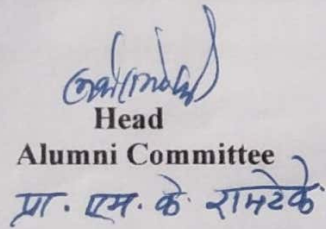 Head
Alumni Committee
प्रा. एम. के. रामटेके